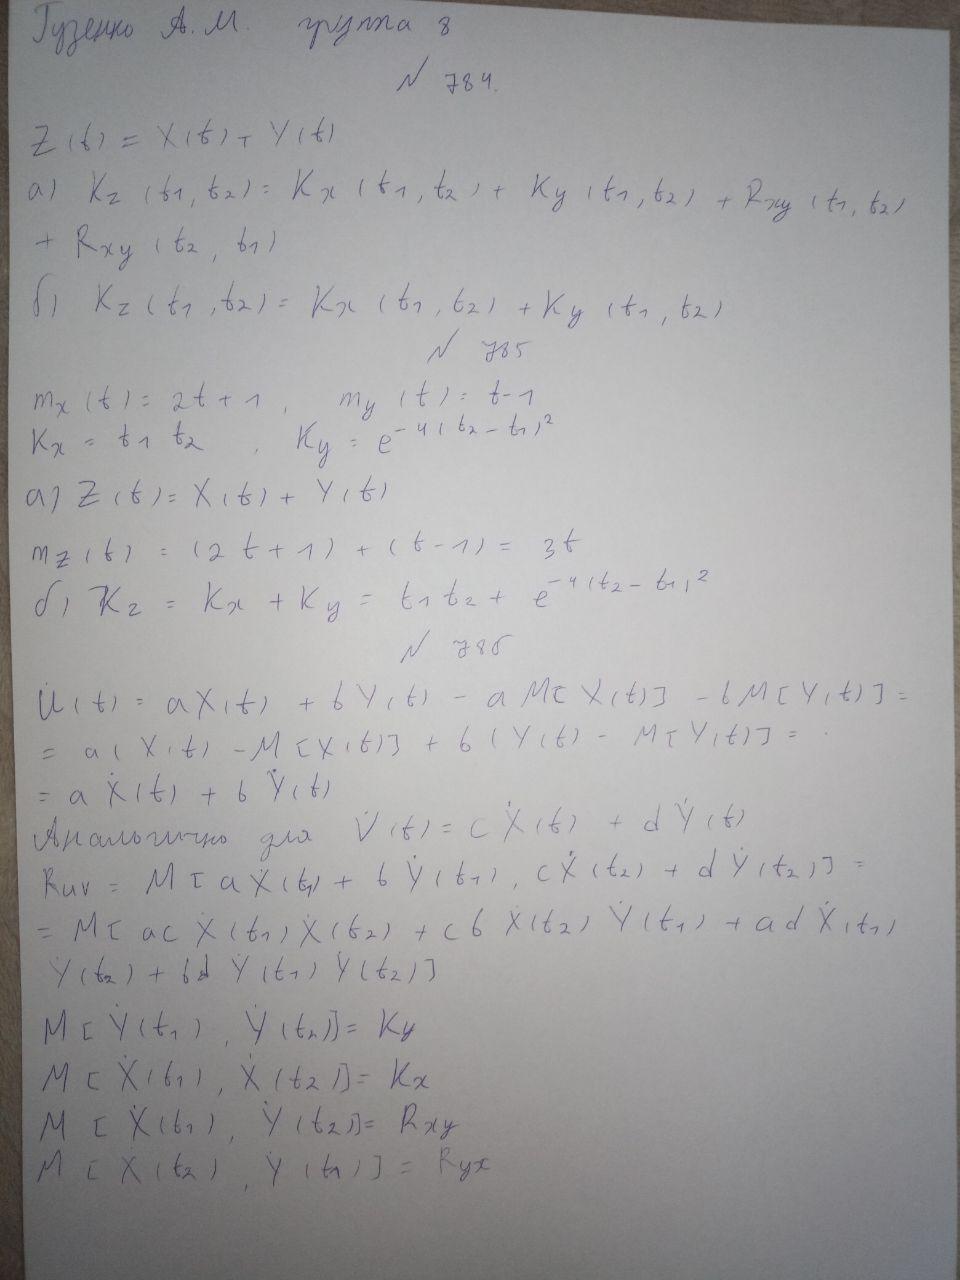 Гузенко А.М. группа 8
N 784.
Z(t) = X(t) + Y(t)
а) Kz (t1, t2) = Kx (t1, t2) + Ky (t1, t2) + Rxy (t1, t2)
+ Rxy (t2, t1)
б) Kz (t1, t2) = Kx (t1, t2) + Ky (t1, t2)
N 785
mx (t) = 2t + 1, my (t) = t-1
Kx = t1 t2, Ky = e^-4(t2 - t1)^2
а) Z(t) = X(t) + Y(t)
mz(t) = (2t + 1) + (t-1) = 3t
б) Kz = Kx + Ky = t1 t2 + e^-4(t2 - t1)^2
N 786
U̇(t) = aX(t) + bY(t) - aM[X(t)] - bM[Y(t)] =
= a(X(t) - M[X(t)] + b(Y(t) - M[Y(t)] =
= aẊ(t) + bẎ(t)
Аналогично для V̇(t) = cẊ(t) + dẎ(t)
Ruv = M[aẊ(t1) + bẎ(t1), cẊ(t2) + dẎ(t2)] =
= M[acẊ(t1)Ẋ(t2) + cbẊ(t2)Ẏ(t1) + adẊ(t1)
Ẏ(t2) + bdẎ(t1)Ẏ(t2)]
M[Ẏ(t1), Ẏ(t2)] = Ky
M[Ẋ(t1), Ẋ(t2)] = Kx
M[Ẋ(t1), Ẏ(t2)] = Rxy
M[Ẋ(t2), Ẏ(t1)] = Ryx